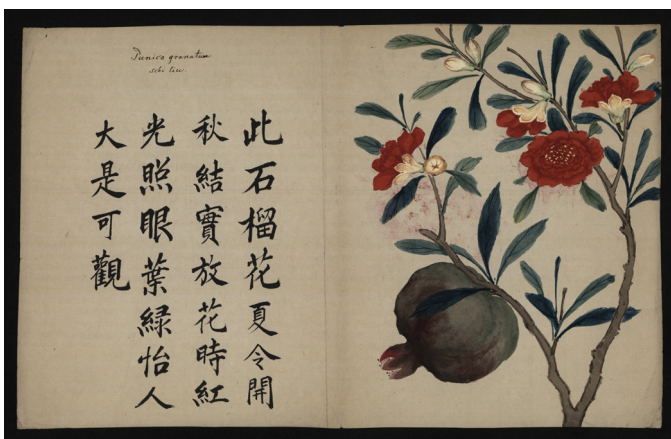 Punica granatum
schi liu.
此石榴花夏令開
秋結實放花時紅
光照眼葉緑怡人
大是可觀